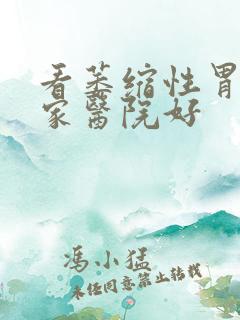 看萎缩性胃
家醫院好
冯小猛
未任同意禁止转载